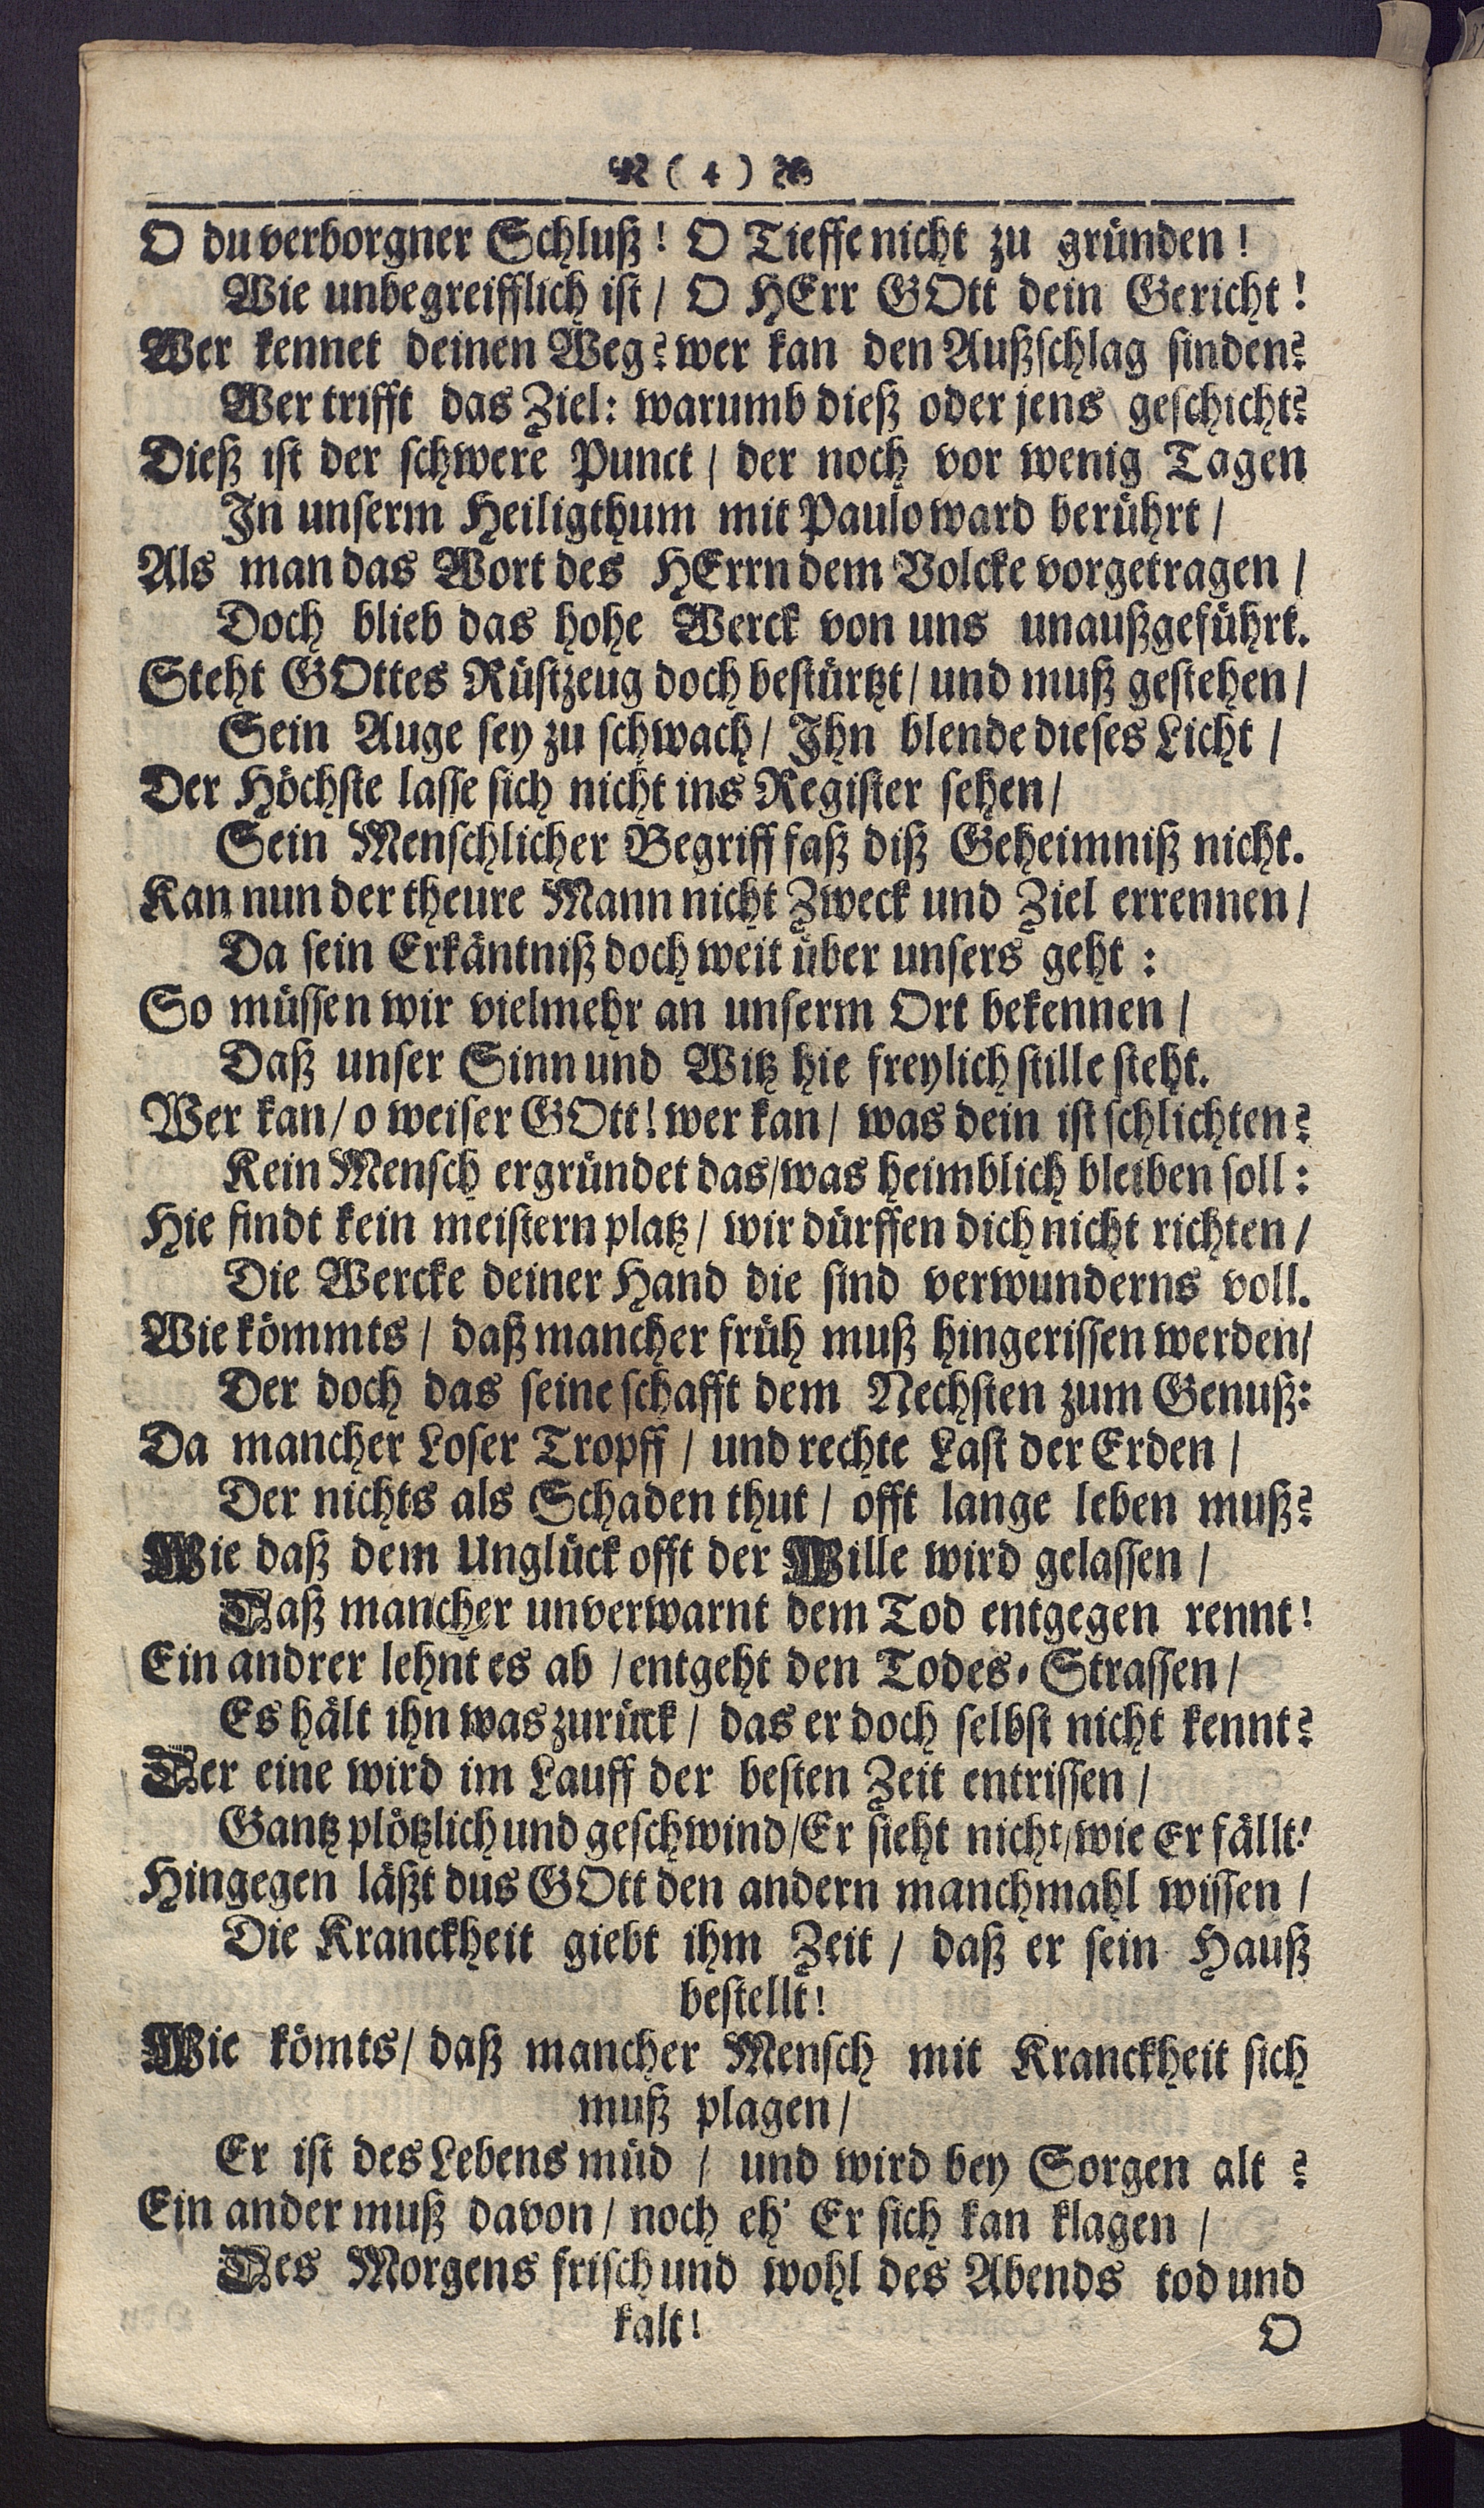 ( 4 )
O du verborgner Schluß! O Tieffe nicht zu gründen!
Wie unbegreifflich ist / O HErr GOtt dein Gericht!
Wer kennet deinen Weg? wer kan den Außschlag finden?
Wer trifft das Ziel: warumb dieß oder jens geschicht?
Dieß ist der schwere Punct / der noch vor wenig Tagen
In unserm Heiligthum mit Paulo ward berührt /
Als man das Wort des HErrn dem Volcke vorgetragen /
Doch blieb das hohe Werck von uns unaußgeführt.
Steht GOttes Rüstzeug doch bestürtzt / und muß gestehen /
Sein Auge sey zu schwach / Ihn blende dieses Licht /
Der Höchste lasse sich nicht ins Register sehen /
Sein Menschlicher Begriff faß diß Geheimniß nicht.
Kan nun der theure Mann nicht Zweck und Ziel errennen /
Da sein Erkäntniß doch weit über unsers geht :
So müssen wir vielmehr an unserm Ort bekennen /
Daß unser Sinn und Witz hie freylich stille steht.
Wer kan / o weiser GOtt! wer kan / was dein ist schlichten?
Kein Mensch ergründet das / was heimblich bleiben soll :
Hie findt kein meistern platz / wir dürffen dich nicht richten /
Die Wercke deiner Hand die sind verwunderns voll.
Wie kömmts / daß mancher früh muß hingerissen werden /
Der doch das seine schafft dem Nechsten zum Genuß:
Da mancher Loser Tropff / und rechte Last der Erden /
Der nichts als Schaden thut / offt lange leben muß?
Wie daß dem Unglück offt der Wille wird gelassen /
Daß mancher unverwarnt dem Tod entgegen rennt!
Ein andrer lehnt es ab / entgeht den Todes-Strassen /
Es hält ihn was zurück / das er doch selbst nicht kennt?
Der eine wird im Lauff der besten Zeit entrissen /
Gantz plötzlich und geschwind / Er sieht nicht / wie Er fällt!
Hingegen läßt dus GOtt den andern manchmahl wissen /
Die Kranckheit giebt ihm Zeit / daß er sein Hauß
bestellt!
Wie kömts / daß mancher Mensch mit Kranckheit sich
muß plagen /
Er ist des Lebens müd / und wird bey Sorgen alt ?
Ein ander muß davon / noch eh' Er sich kan klagen /
Des Morgens frisch und wohl des Abends tod und
kalt!
O